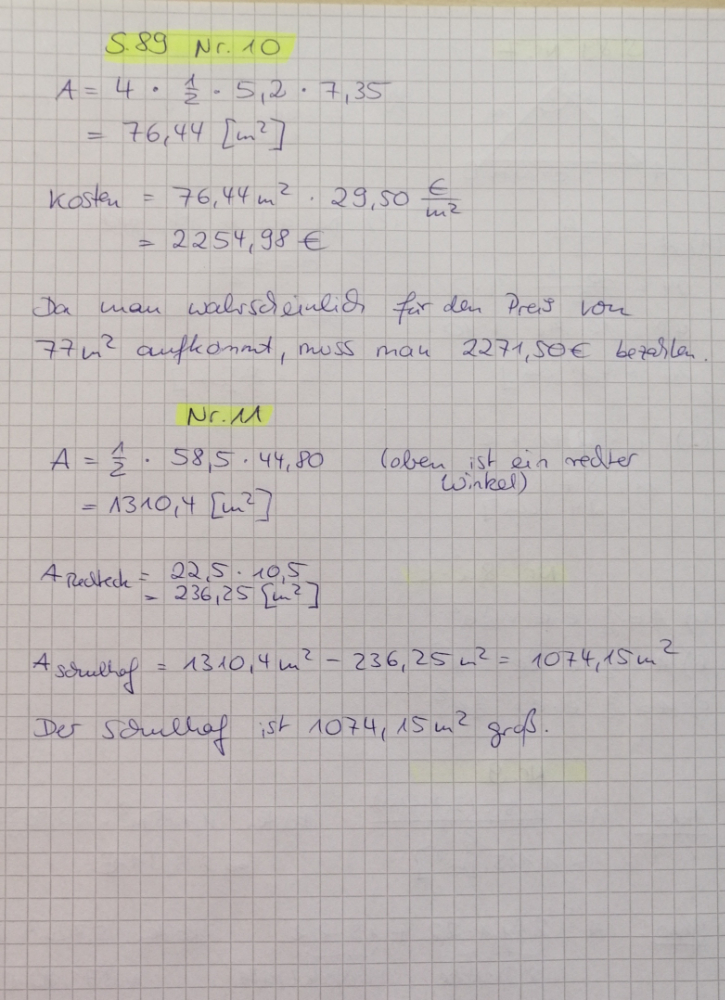 S.89 Nr. 10
A = 4 · 1/2 · 5,2 · 7,35
= 76,44 [m²]
Kosten = 76,44 m² · 29,50 €/m²
= 2254,98 €
Da man wahrscheinlich für den Preis von
77 m² aufkommt, muss man 2271,50 € bezahlen.
Nr. 11
A = 1/2 · 58,5 · 44,80 (oben ist ein rechter
Winkel)
= 1310,4 [m²]
A Rechteck = 22,5 · 10,5
= 236,25 [m²]
A Schulhof = 1310,4 m² - 236,25 m² = 1074,15 m²
Der Schulhof ist 1074,15 m² groß.